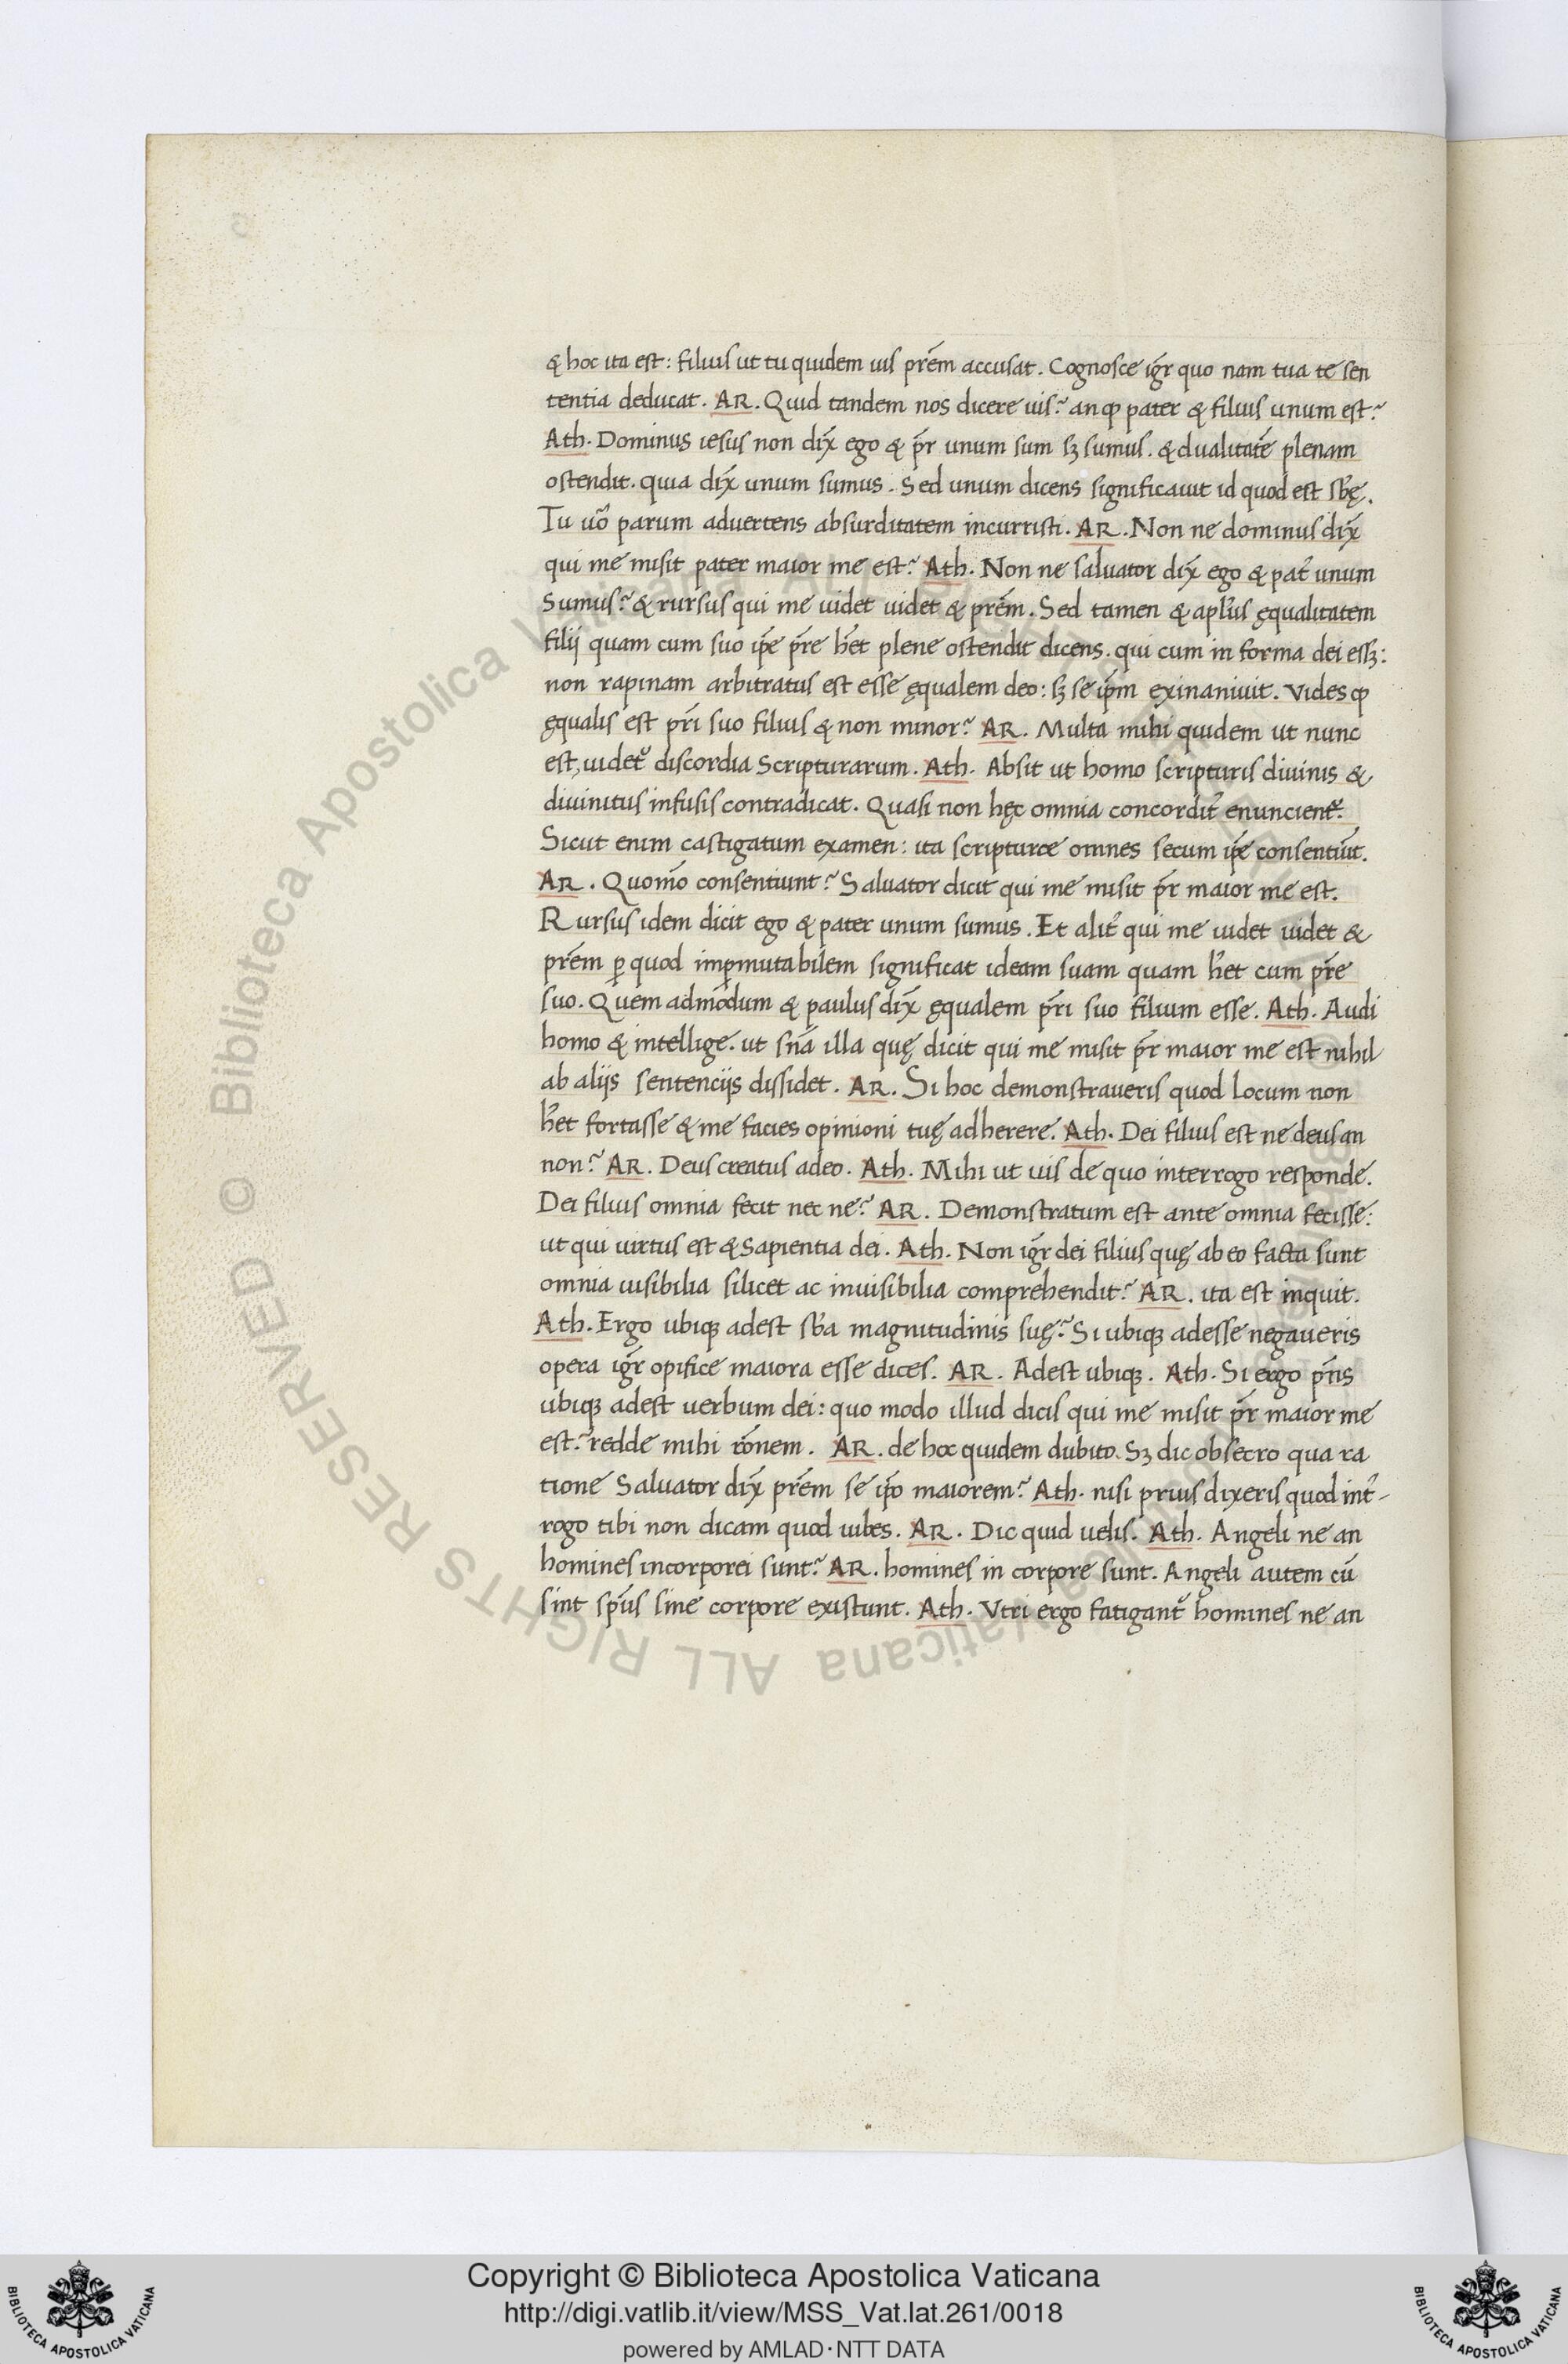 & hoc ita est: filius ut tu quidem uis prẽm accusat. Cognosce igr̃ quo nam tua te sen
tentia deducat. AR. Quid tandem nos dicere uis? an ꝙ pater & filius unum est?
Ath. Dominus iesus non dix̃ ego & pr̃ unum sum sꝫ sumus. & dualitatẽ plenam
ostendit. quia dix̃ unum sumus. Sed unum dicens significauit id quod est sb̃ę.
Tu uõ parum aduertens absurditatem incurristi. AR. Non ne dominus dix̃
qui me misit pater maior me est? Ath. Non ne saluator dix̃ ego & pat̃ unum
Sumus? & rursus qui me uidet uidet & prẽm. Sed tamen & apl̃us ęqualitatem
filij quam cum suo ip̃e pr̃e h̃et plene ostendit dicens. qui cum in forma dei essꝫ:
non rapinam arbitratus est esse ęqualem deo: sꝫ se ip̃m exinaniuit. Vides ꝙ
ęqualis est pr̃i suo filius & non minor? AR. Multa mihi quidem ut nunc
est, uidet᷑ discordia Scripturarum. Ath. Absit ut homo scripturis diuinis &
diuinitus infusis contradicat. Quasi non hęc omnia concordit̃ enuncient᷑.
Sicut enim castigatum examen: ita scripturæ omnes secum ip̃e consentiũt.
AR. Quomõ consentiunt? Saluator dicit qui me misit pr̃ maior me est.
Rursus idem dicit ego & pater unum sumus. Et alit̃ qui me uidet uidet &
prẽm ꝑ quod imꝑmutabilem significat ideam suam quam h̃et cum pr̃e
suo. Quem admõdum & paulus dix̃ ęqualem pr̃i suo filium esse. Ath. Audi
homo & intellige. ut sña illa quę dicit qui me misit pr̃ maior me est nihil
ab alijs sentencijs dissidet. AR. Si hoc demonstraueris quod Locum non
h̃et fortasse & me facies opinioni tuę adherere. Ath. Dei filius est ne deus an
non? AR. Deus creatus a deo. Ath. Mihi ut uis de quo interrogo responde.
Dei filius omnia fecit nec ne? AR. Demonstratum est ante omnia fecisse:
ut qui uirtus est & Sapientia dei. Ath. Non igr̃ dei filius quę ab eo facta sunt
omnia uisibilia silicet ac inuisibilia comprehendit? AR. ita est inquit.
Ath. Ergo ubiqꝫ adest sb̃a magnitudinis suę? Si ubiqꝫ adesse negaueris
opera igr̃ opifice maiora esse dices. AR. Adest ubiqꝫ. Ath. Si ergo pr̃is
ubiqꝫ adest uerbum dei: quo modo illud dicis qui me misit pr̃ maior me
est? redde mihi rõnem. AR. de hoc quidem dubito. Sꝫ dic obsecro qua ra
tione Saluator dix̃ prẽm se ip̃o maiorem? Ath. nisi prius dixeris quod int̃-
rogo tibi non dicam quod iubes. AR. Dic quid uelis. Ath. Angeli ne an
homines incorporei sunt? AR. homines in corpore sunt. Angeli autem cũ
sint sp̃us sine corpore existunt. Ath. Vtri ergo fatigant᷑ homines ne an
Copyright © Biblioteca Apostolica Vaticana
http://digi.vatlib.it/view/MSS_Vat.lat.261/0018
powered by AMLAD·NTT DATA
BIBLIOTECA APOSTOLICA VATICANA
BIBLIOTECA APOSTOLICA VATICANA
© Biblioteca Apostolica Vaticana ALL RIGHTS RESERVED